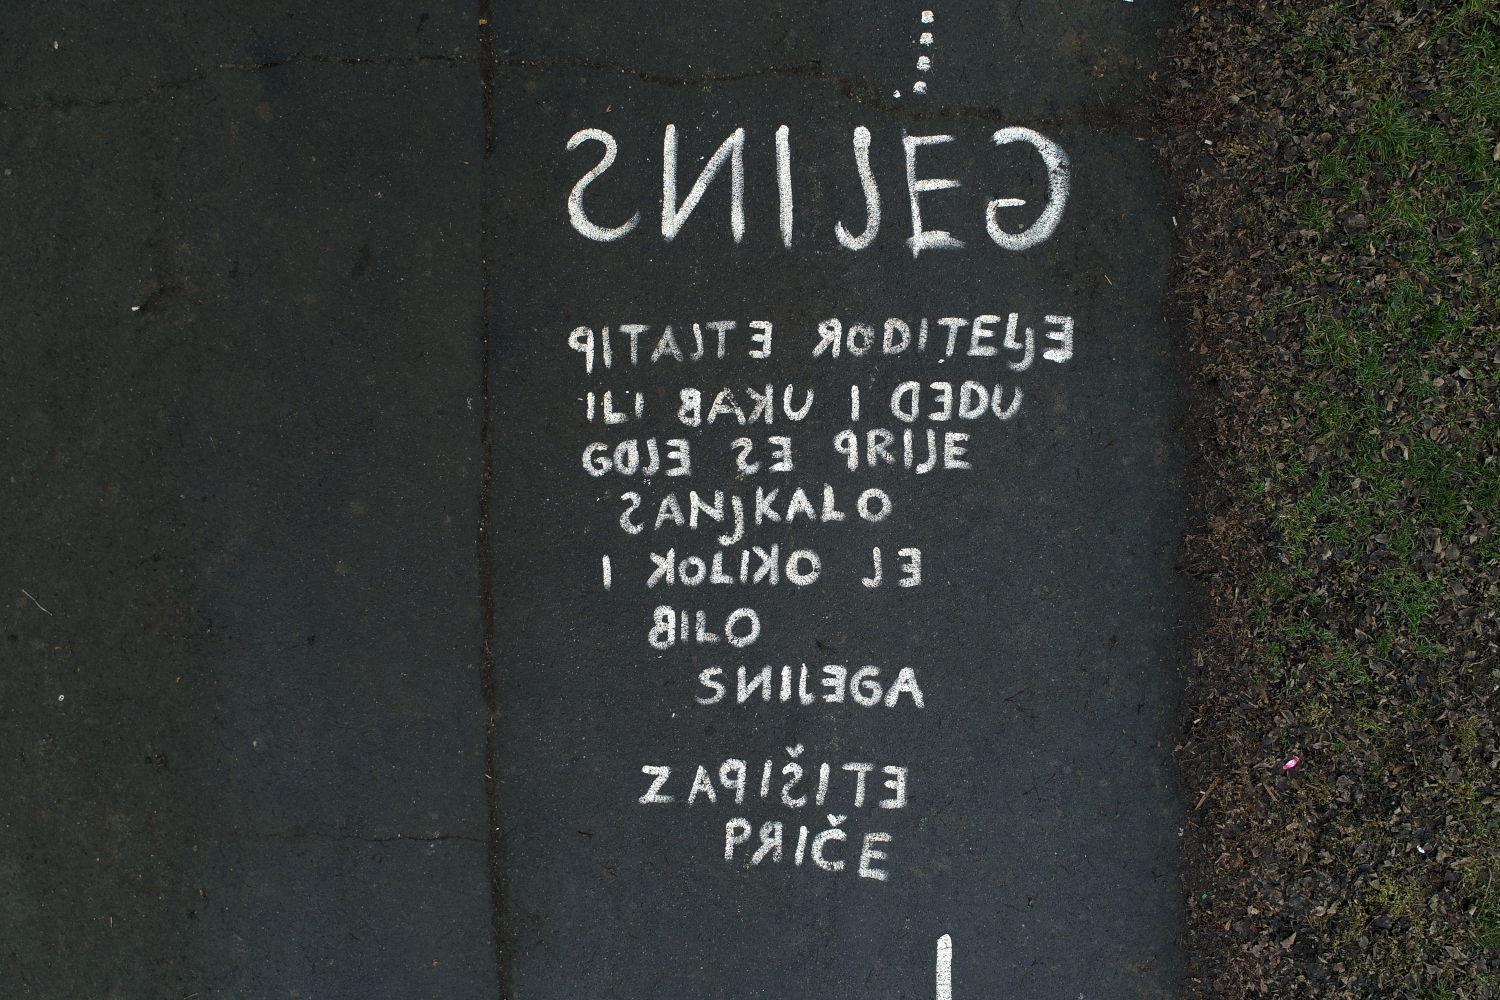 SNIJEG
PITAJTE RODITELJE
ILI BAKU I DEDU
GDJE SE PRIJE
SANJKALO
I KOLIKO JE
BILO
SNIJEGA
ZAPIŠITE
PRIČE